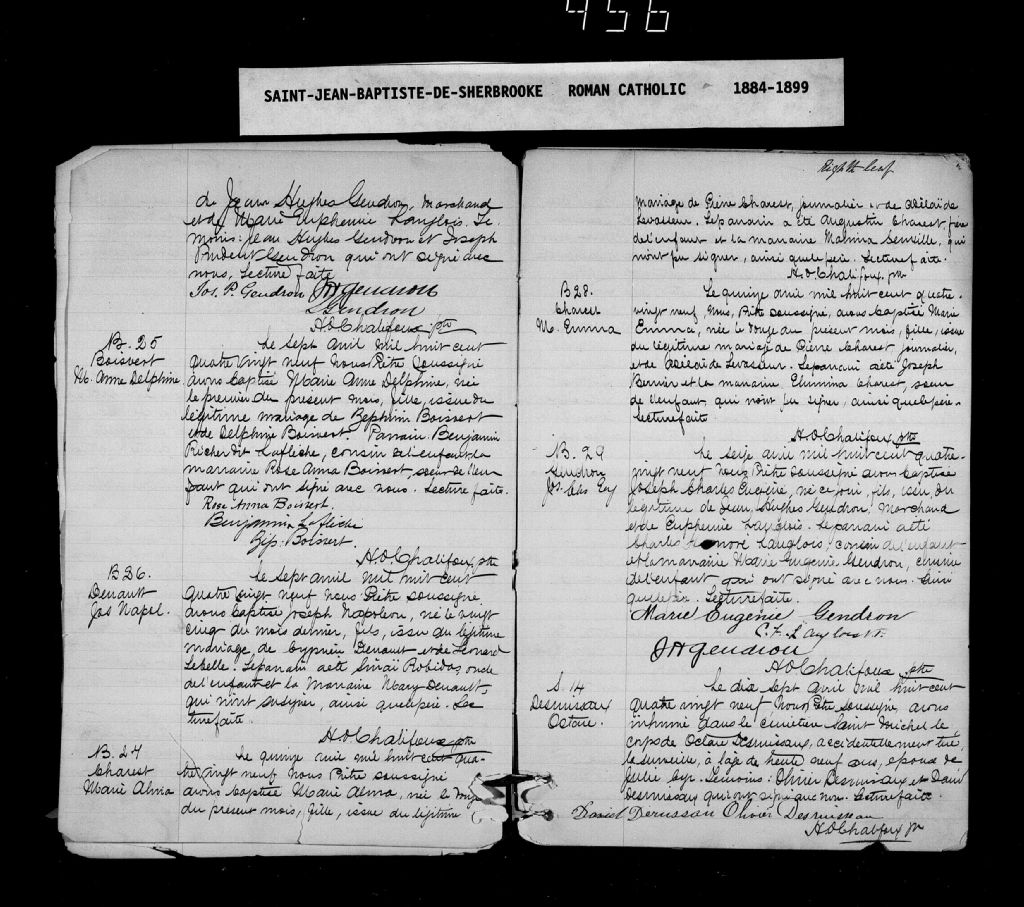 456
SAINT-JEAN-BAPTISTE-DE-SHERBROOKE ROMAN CATHOLIC 1884-1899
de Jean Hughes Gendron, Marchand
et de Marie Euphemie Langlois. Te
moins: Jean Hughes Gendron et Joseph
Prudent Gendron qui ont signé avec
nous, Lecture faite
Jos. P. Gendron JHGendron
Gendron
H.O.Chalifoux ptre
B. 25
Boisvert
M. Anne Delphine
Le sept avril mil huit cent
quatre vingt neuf Nous Prêtre soussigné
avons baptisé Marie Anne Delphine, née
le premier du present mois, fille, issue du
légitime mariage de Zephirin Boisvert
et de Delphine Boisvert. Parrain Benjamin
Richer dit Laflèche, cousin de l'enfant la
marraine Rose Anna Boisvert, soeur de l'en
fant qui ont signé avec nous. Lecture faite.
Rose Anna Boisvert.
Benjamin Laflèche
Zip. Boisvert.
H.O.Chalifoux ptre
B 26.
Denault
Jos Napol.
Le sept avril mil huit cent
quatre vingt neuf Nous Prêtre soussigné
avons baptisé Joseph Napoléon, né le vingt
cinq du mois dernier, fils, issu du légitime
mariage de Cyprien Denault et de Léonard
Lebelle. Le parrain a été Sinaï Robidas, oncle
de l'enfant et la Marraine Mary Denault,
qui n'ont su signer, ainsi que le père. Lec
ture faite.
H.O.Chalifoux ptre
B. 27
Charest
Marie Alma
Le quinze avril mil huit cent qua-
tre vingt neuf Nous Prêtre soussigné
avons baptisé Marie Alma, née le douze
du present mois, fille, issue du légitime
Eighth leaf
mariage de Pierre Charest, journalier et de Adélaïde
Levasseur. Le parrain a été Augustin Charest, frère
de l'enfant et la marraine Malvina qui
n'ont pu signer, ainsi que le père. Lecture faite.
H.O.Chalifoux ptr
B 28.
Charest
M. Emma
Le quinze avril mil huit cent quatre-
vingt neuf, Nous, Prêtre soussigné, avons baptisé Marie
Emma, née le douze du present mois, fille, issue
du légitime mariage de Pierre Charest, journalier,
et de Adélaïde Levasseur. Le parrain a été Joseph
Bernier et la marraine Elmina Charest, soeur
de l'enfant, qui n'ont pu signer, ainsi que le père.
Lecture faite
H.O.Chalifoux ptre
B. 29
Gendron
Jos. Chs Eug
Le seize avril mil huit cent quatre-
vingt neuf Nous Prêtre soussigné avons baptisé
Joseph Charles Eugène, né ce jour, fils, issu du
légitime de Jean Hughes Gendron, Marchand
et de Euphemie Langlois. Le parrain a été
Charles Honoré Langlois, cousin de l'enfant
et la marraine Marie Eugenie Gendron, cousine
de l'enfant qui ont signé avec nous ainsi
que le père. Lecture faite.
Marie Eugenie Gendron
C. H. Langlois
JHGendron
H.O.Chalifoux ptre
S. 14
Desruisseaux
Octave.
Le dix sept avril mil huit cent
quatre vingt neuf Nous Ptre soussigné, avons
inhumé dans le cimetière Saint Michel le
corps de Octave Desruisseaux, accidentellement tué,
la surveille, à l'âge de trente neuf ans, époux de
Julie Cyr. Témoins: Olivier Desruisseaux et David
Desruisseaux qui ont signé avec nous. Lecture faite.
David Desruisseau Olivier Desruisseau
H.O.Chalifoux ptr